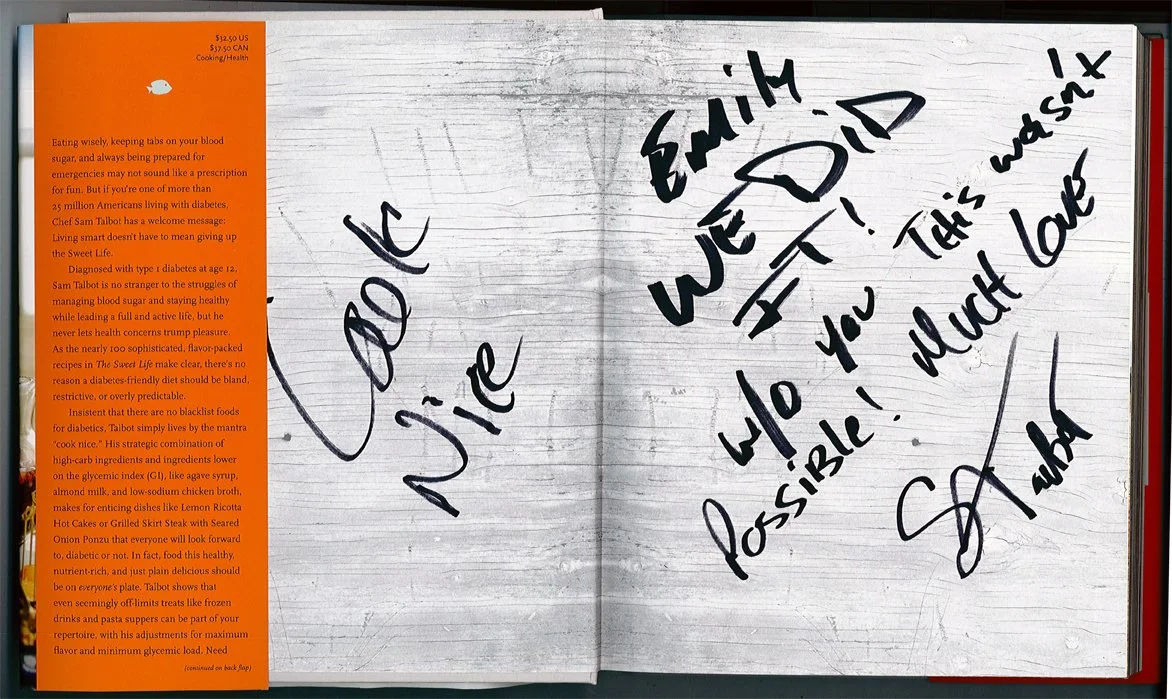 $32.50 US
$37.50 CAN
Cooking/Health
Eating wisely, keeping tabs on your blood
sugar, and always being prepared for
emergencies may not sound like a prescription
for fun. But if you're one of more than
25 million Americans living with diabetes,
Chef Sam Talbot has a welcome message:
Living smart doesn't have to mean giving up
the Sweet Life.
Diagnosed with type 1 diabetes at age 12,
Sam Talbot is no stranger to the struggles of
managing blood sugar and staying healthy
while leading a full and active life, but he
never lets health concerns trump pleasure.
As the nearly 100 sophisticated, flavor-packed
recipes in The Sweet Life make clear, there's no
reason a diabetes-friendly diet should be bland,
restrictive, or overly predictable.
Insistent that there are no blacklist foods
for diabetics, Talbot simply lives by the mantra
"cook nice." His strategic combination of
high-carb ingredients and ingredients lower
on the glycemic index (GI), like agave syrup,
almond milk, and low-sodium chicken broth,
makes for enticing dishes like Lemon Ricotta
Hot Cakes or Grilled Skirt Steak with Seared
Onion Ponzu that everyone will look forward
to, diabetic or not. In fact, food this healthy,
nutrient-rich, and just plain delicious should
be on everyone's plate. Talbot shows that
even seemingly off-limits treats like frozen
drinks and pasta suppers can be part of your
repertoire, with his adjustments for maximum
flavor and minimum glycemic load. Need
(continued on back flap)
Cook
Nice
Emily
WE DID
IT! This wasn't
w/o you Much Love
Possible!
S Talbot